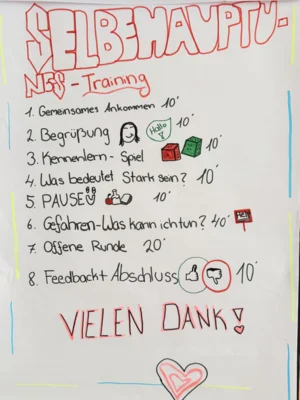 SELBEHAUPTU-
NGS - Training
1. Gemeinsames Ankommen 10'
2. Begrüßung Hallo ! 10'
3. Kennenlern - Spiel 10'
4. Was bedeutet Stark sein? 10'
5. PAUSE 10'
6. Gefahren - Was kann ich tun? 40'
7. Offene Runde 20'
8. Feedback + Abschluss 10'
VIELEN DANK!